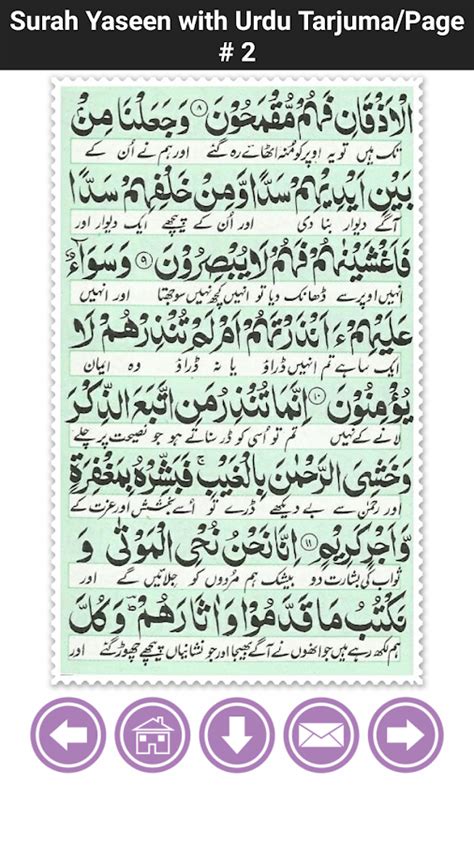 Surah Yaseen with Urdu Tarjuma/Page
# 2
الْاَذْقَانِ فَهُمْ مُّقْمَحُوْنَ ۸ وَجَعَلْنَا مِنْۢ
تک ہیں تو یہ اوپر کو منہ اٹھائے رہ گئے اور ہم نے اُن کے
بَيْنِ اَيْدِيْهِمْ سَدًّا وَّمِنْ خَلْفِهِمْ سَدًّا
آگے دیوار بنا دی اور اُن کے پیچھے ایک دیوار اور
فَاَغْشَيْنٰهُمْ فَهُمْ لَا يُبْصِرُوْنَ ۹ وَسَوَآءٌ
انہیں اوپر سے ڈھانک دیا تو انہیں کچھ نہیں سوجھتا اور انہیں
عَلَيْهِمْ ءَاَنْذَرْتَهُمْ اَمْ لَمْ تُنْذِرْهُمْ لَا
ایک سا ہے تم انہیں ڈراؤ یا نہ ڈراؤ وہ ایمان
يُؤْمِنُوْنَ ۱۰ اِنَّمَا تُنْذِرُ مَنِ اتَّبَعَ الذِّكْرَ
لانے کے نہیں تم تو اُسی کو ڈر سناتے ہو جو نصیحت پر چلے
وَخَشِيَ الرَّحْمٰنَ بِالْغَيْبِ ۚ فَبَشِّرْهُ بِمَغْفِرَةٍ
اور رحمٰن سے بے دیکھے ڈرے تو اُسے بخشش اور عزت کے
وَّاَجْرٍ كَرِيْمٍ ۱۱ اِنَّا نَحْنُ نُحْيِ الْمَوْتٰى وَ
ثواب کی بشارت دو بیشک ہم مُردوں کو جلائیں گے اور
نَكْتُبُ مَا قَدَّمُوْا وَاٰثَارَهُمْ ۗ وَكُلَّ
ہم لکھ رہے ہیں جو اُنھوں نے آگے بھیجا اور جو نشانیاں پیچھے چھوڑ گئے اور